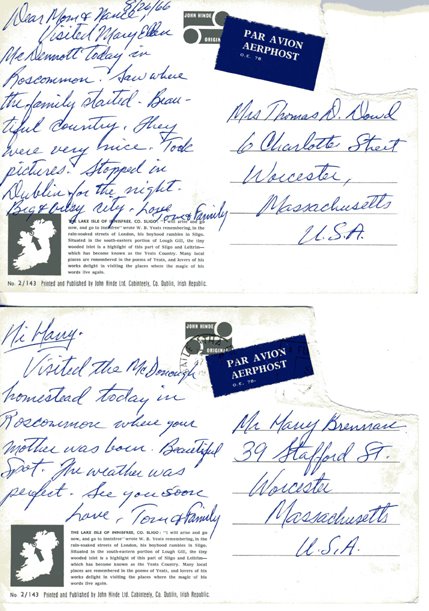 Dear Mom & Nance 8/26/66
Visited Mary Ellen
McDermott today in
Roscommon. Saw where
the family started. Beau-
tiful country. They
were very nice. Took
pictures. Stopped in
Dublin for the night.
Big & busy city. Love
Tom & Family
JOHN HINDE
ORIGINAL
PAR AVION
AERPHOST
O.E. 78
Mrs Thomas D. Dowd
6 Charlotte Street
Worcester,
Massachusetts
U.S.A.
THE LAKE ISLE OF INNISFREE, CO. SLIGO. "I will arise and go
now, and go to Innisfree" wrote W. B. Yeats remembering, in the
rain-soaked streets of London, his boyhood rambles in Sligo.
Situated in the south-eastern portion of Lough Gill, the tiny
wooded islet is a highlight of this part of Sligo and Leitrim—
which has become known as the Yeats Country. Many local
places are remembered in the poems of Yeats, and lovers of his
works delight in visiting the places where the magic of his
words live again.
No. 2/143 Printed and Published by John Hinde Ltd. Cabinteely, Co. Dublin, Irish Republic.
Hi Harry.
Visited the McDonough
homestead today in
Roscommon where your
mother was born. Beautiful
spot. The weather was
perfect. See you soon
Love, Tom & Family
JOHN HINDE
ORIGINAL
PAR AVION
AERPHOST
O.E. 78.
Mr Harry Brennan
39 Stafford St.
Worcester
Massachusetts
U.S.A.
THE LAKE ISLE OF INNISFREE, CO. SLIGO. "I will arise and go
now, and go to Innisfree" wrote W. B. Yeats remembering, in the
rain-soaked streets of London, his boyhood rambles in Sligo.
Situated in the south-eastern portion of Lough Gill, the tiny
wooded islet is a highlight of this part of Sligo and Leitrim—
which has become known as the Yeats Country. Many local
places are remembered in the poems of Yeats, and lovers of his
works delight in visiting the places where the magic of his
words live again.
No. 2/143 Printed and Published by John Hinde Ltd. Cabinteely, Co. Dublin, Irish Republic.